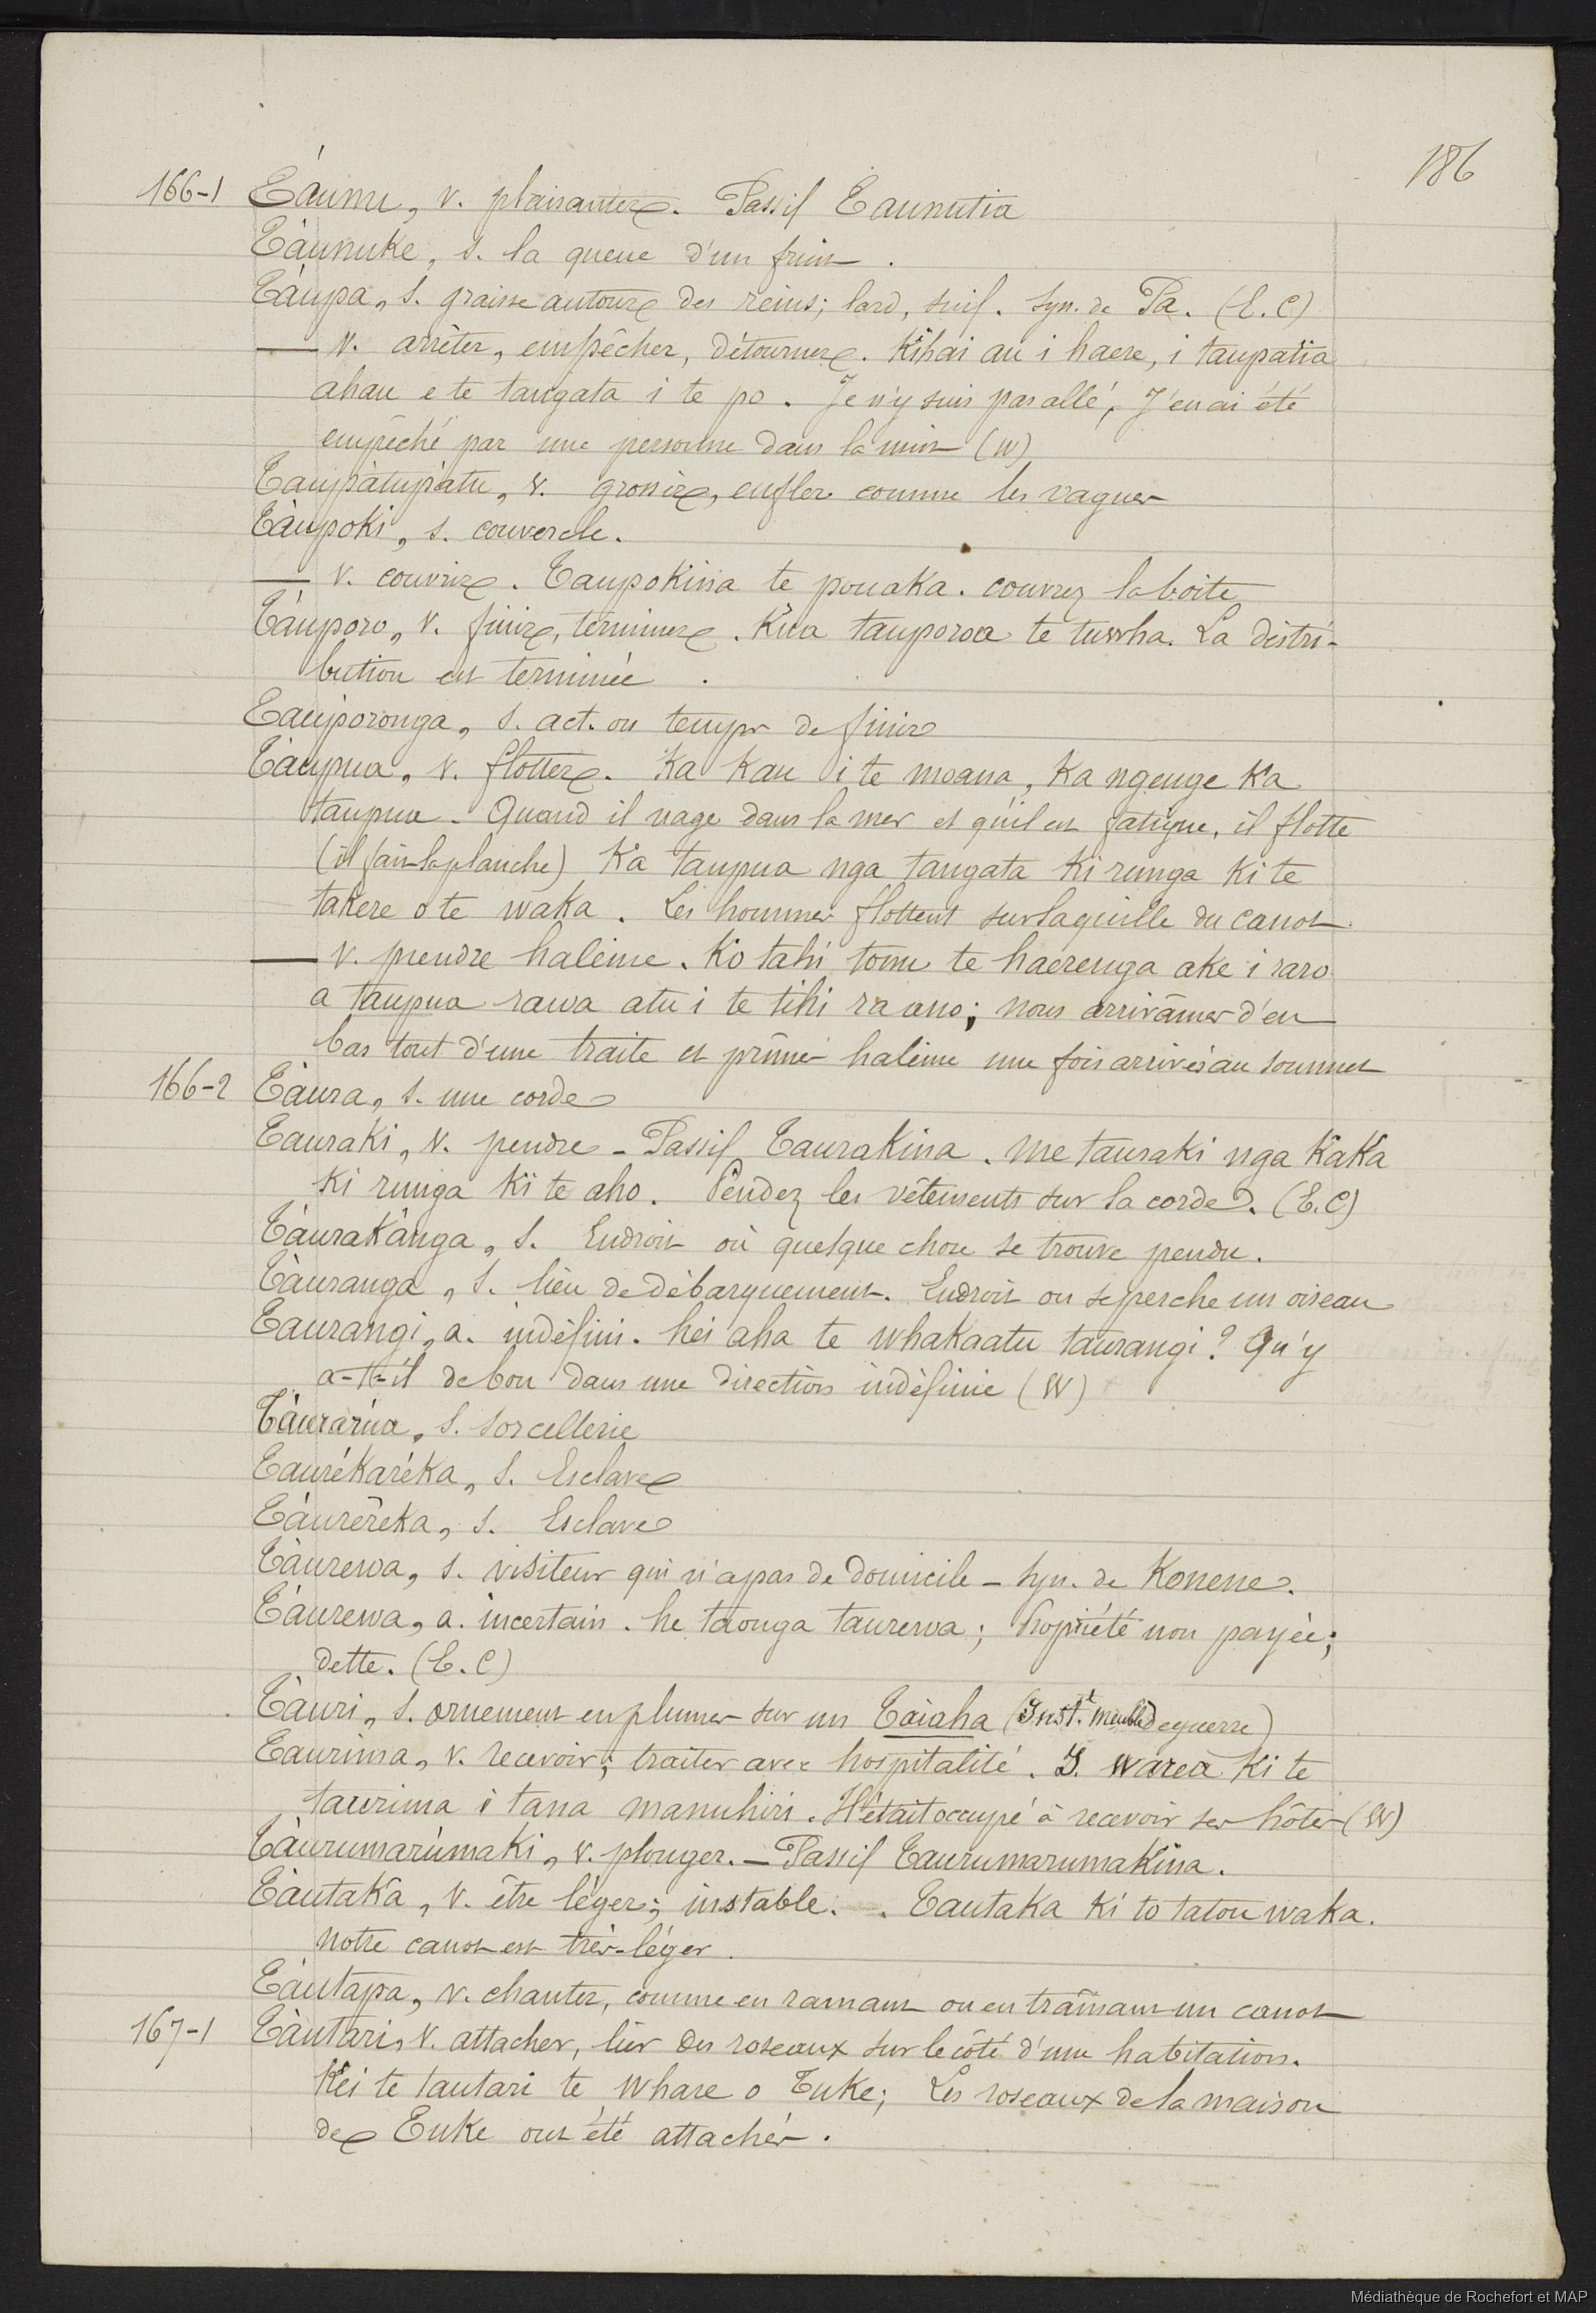 186
166-1 Táunu, v. plaisanter. Passif Taunutia
Táunuke, s. la queue d'un fruit.
Táupa, s. graisse autour des reins; lard, suif. Syn. de Pa. (E. C)
— v. arrêter, empêcher, détourner. Kihai au i haere, i taupatia
ahau e te tangata i te po. Je n'y suis pas allé, J'en ai été
empêché par une personne dans la nuit (W)
Taupàtupàtu, v. grossir, enfler comme les vagues
Tàupoki, s. couvercle.
— v. couvrir. Taupokina te pouaka. couvrez la boite
Táuporo, v. finir, terminer. Kua tauporoa te tuwha. La distri-
bution est terminée.
Tauporonga, s. act. ou temps de finir
Tàupua, v. flotter. Ka kau i te moana, ka ngenge ka
taupua - Quand il nage dans la mer et qu'il est fatigue, il flotte
(il fait la planche) Ka taupua nga tangata ki runga ki te
takere o te waka. Les hommes flottent sur la quille du canot.
— v. prendre haleine. Ko tahi tonu te haerenga ake i raro
a taupua rawa atu i te tihi ra ano; nous arrivâmes d'en
bas tout d'une traite et prîmes haleine une fois arrivés au sommet
166-2 Tàura, s. une corde
Tauraki, v. pendre - Passif Taurakina. me tauraki nga kaka
ki runga ki te aho. Pendez les vêtements sur la corde. (E. C)
Tàurakànga, s. Endroit où quelque chose se trouve pendu.
Tàuranga, s. lieu de débarquement. Endroit ou se perche un oiseau
Taurangi, a. indéfini. hei aha te whakaatu taurangi? Qu'y
a-t-il de bon dans une direction indéfinie (W)
Tàurarúa, s. sorcellerie
Taurékaréka, s. Esclave
Tàurèreka, s. Esclave
Tàurewa, s. visiteur qui n'a pas de domicile - Syn. de Konene.
Tàurewa, a. incertain. he taonga taurewa; Propriété non payée;
dette. (E. C)
Tàuri, s. ornement en plumes sur un Taiaha (Inst.t meuble de guerre)
Taurima, v. recevoir; traiter avec hospitalité. I. wareà ki te
taurima i tana manuhiri. Il était occupé à recevoir ses hôtes (W)
Tàurumarùmaki, v. plonger. - Passif Taurumarumakina.
Tàutaka, v. être léger; instable. . Tautaka ki to tatou waka.
notre canot est très-léger.
Tàutapa, v. chanter, comme en ramant ou en traînant un canot
167-1 Tàutari, v. attacher, lier des roseaux sur le côté d'une habitation.
Kei te tautari te whare o Tuke; Les roseaux de la maison
de Tuke ont été attachés.
Médiathèque de Rochefort et MAP